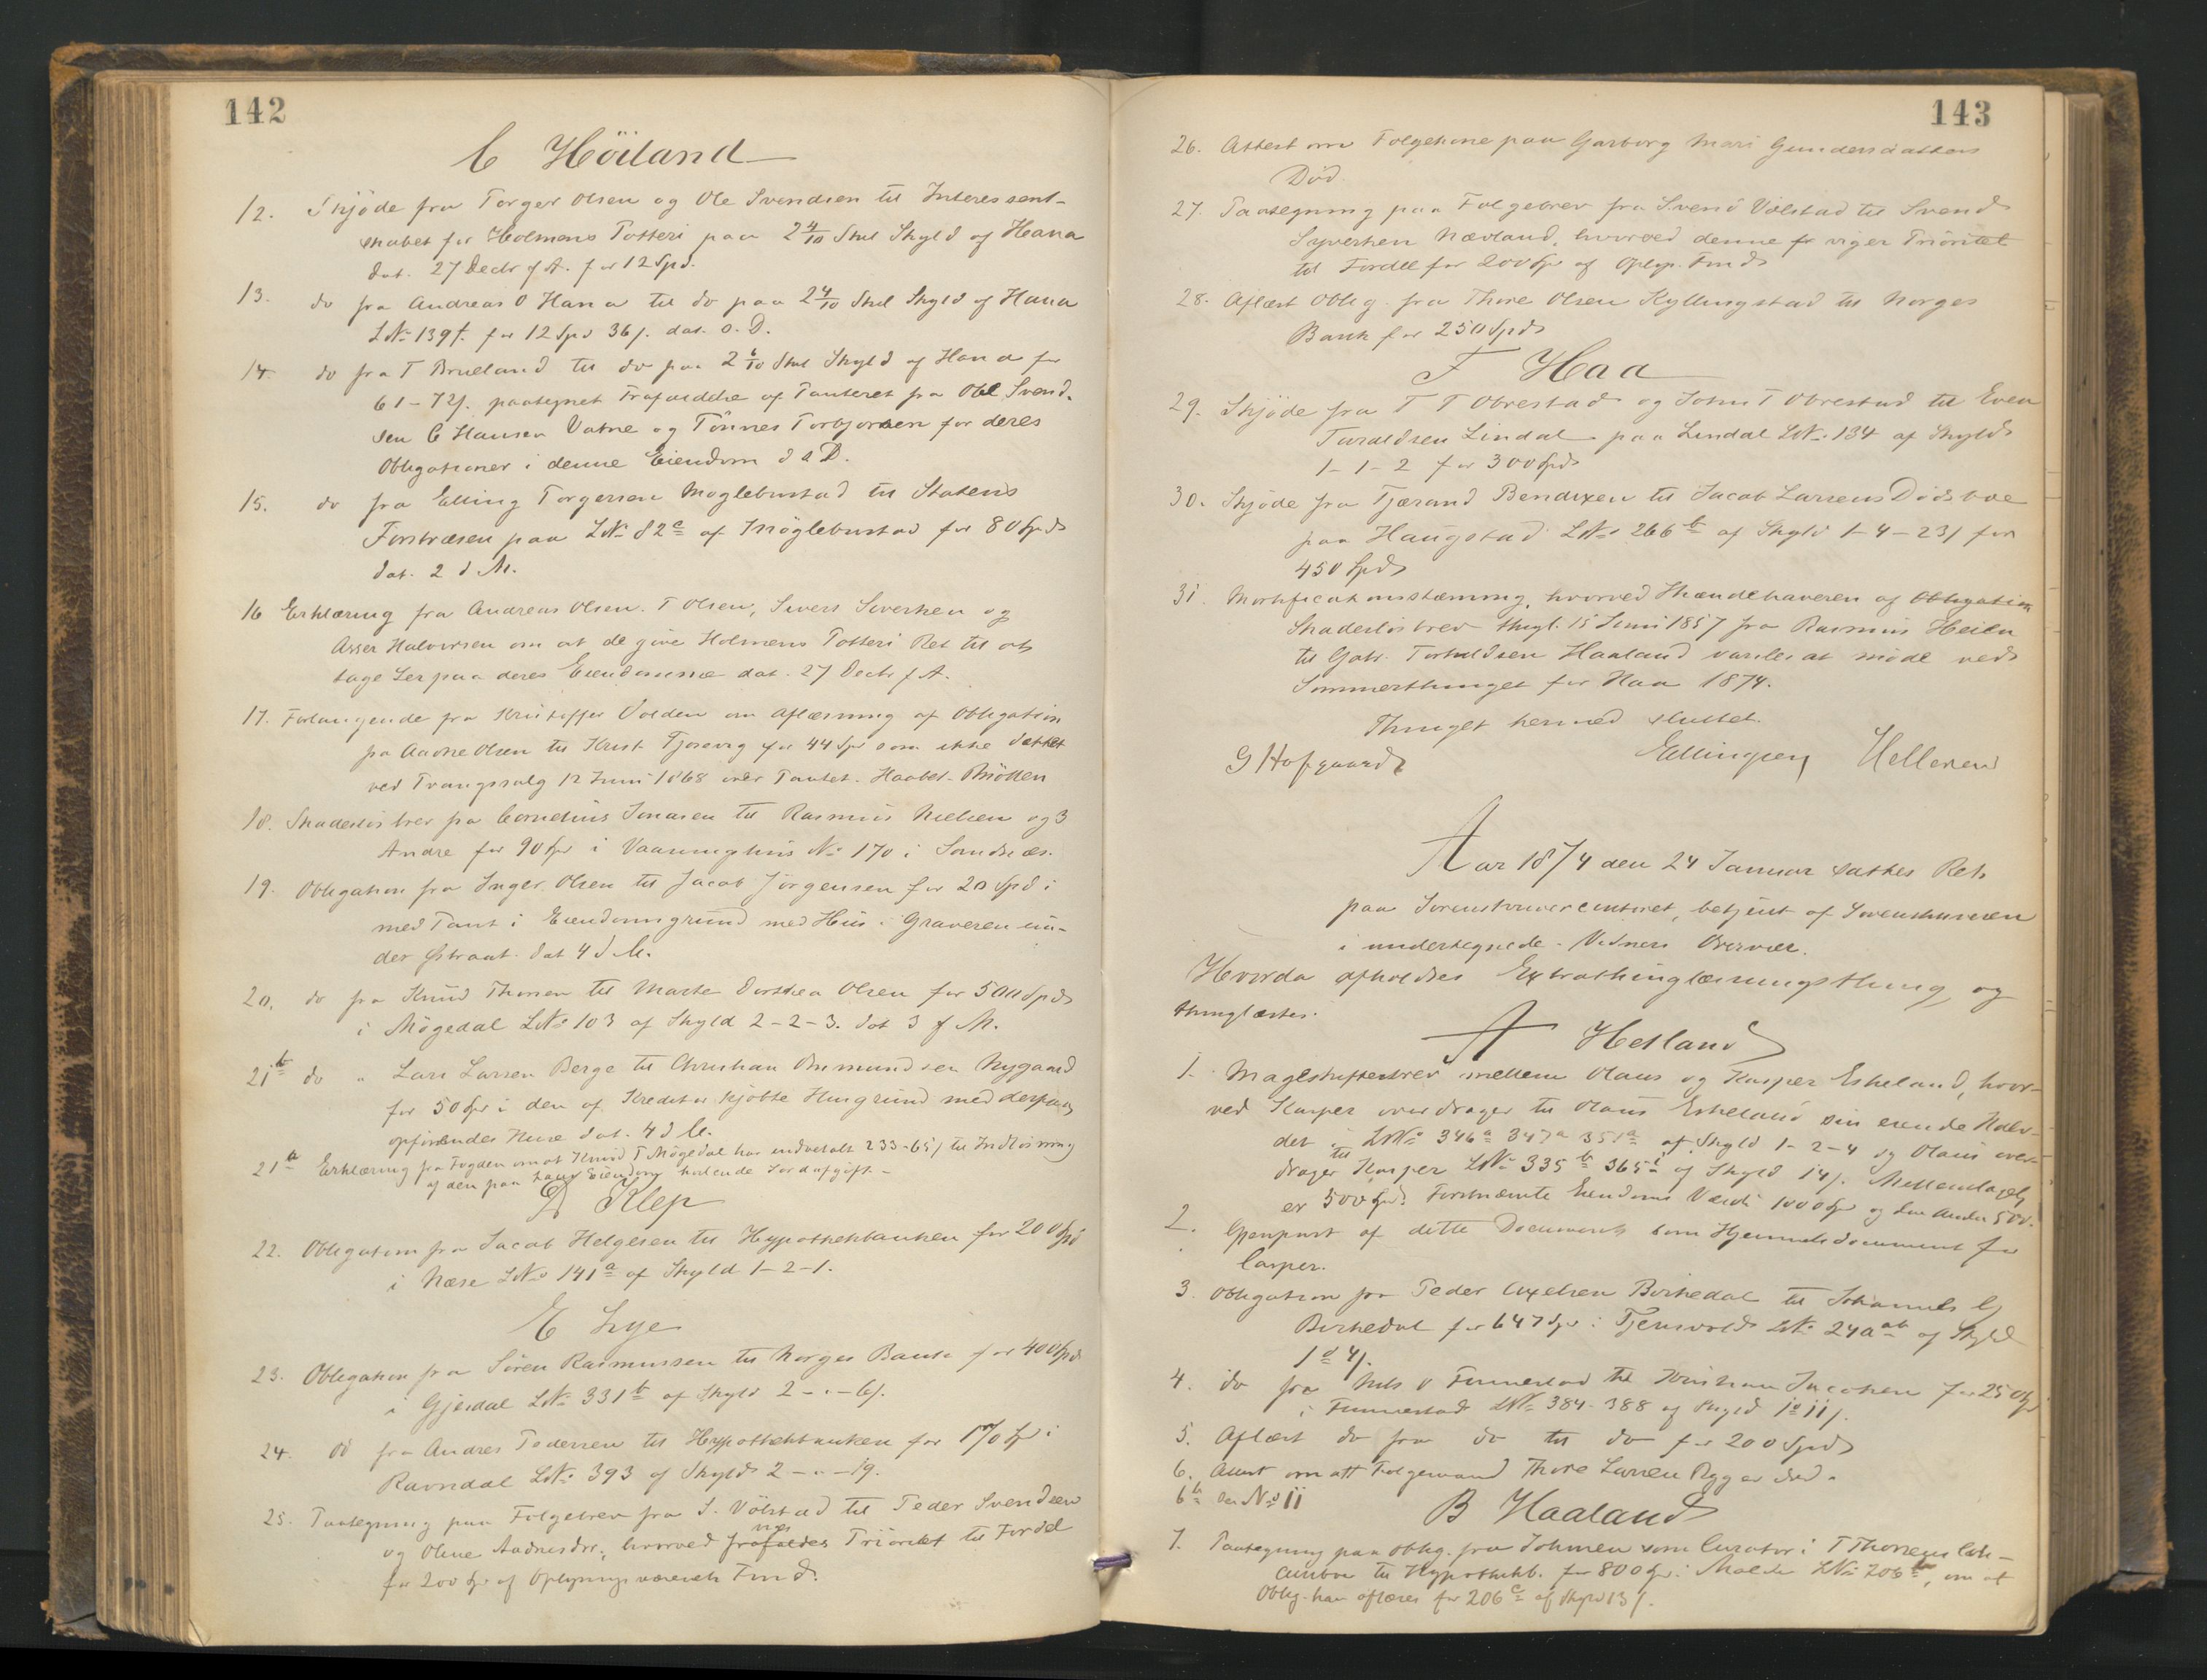 142
C Höiland
12. Skjöde fra Torger Olsen og Ole Svendsen til Interessent-
skabet for Holmens Potteri paa 2 4/10 Skil Skyld af Hana
dat. 27 Decbr f A. for 12 Spd.
13. do fra Andreas O Hana til do paa 2 4/10 Skil Skyld af Hana
LNo 139f. for 12 Spd 36 s. dat. s. D.
14. do fra T Brueland til do paa 2 6/10 Skil Skyld af Hana for
61-72 s. paategnet Frafaldelse af Panteret fra Ole Svend-
sen C Hansen Vatne og Tönnes Torbjørnsen for deres
Obligationer i denne Eiendom d. a D.
15. do fra Elling Torgersen Moglebustad til Statens
Forstvæsen paa LNo 82c af Möglebustad for 80 Spd
dat. 2 d M.
16 Erklæring fra Andreas Olsen. T Olsen, Sivert Sivertsen og
Asser Halvorsen om at de give Holmens Potteri Ret til at
tage Ler paa deres Eiendomme dat. 27 Decbr f A.
17. Forlangende fra Kristoffer Volden om Aflæsning af Obligation
fra Aadne Olsen til Krist Tjosevig for 44 Spd som ikke dækket
ved Tvangssalg 12 Juni 1868 over Pantet. Haabet-Bråtten
18. Skadeslösbrev fra Cornelius Jonasen til Rasmus Nielsen og 3
Andre for 90 Spd i Vaaningshus No 170 i Sandnæs.
19. Obligation fra Inger Olsen til Jacob Jörgensen for 20 Spd i
med Pant i Eiendomsgrund med Hus i Graveren un-
der Østraat. dat 4 d M.
20. do fra Knud Thorsen til Marte Dorthea Olsen for 500 Spd
i Mögedal LNo 103 af Skyld 2-2-3. dat 3 f M.
21b do " Lars Larsen Berge til Christian Osmundsen Nygaard
for 50 Spd i den af Kreditor kjöbte Husgrund med derpaa
opförendes Huse dat. 4 d M.
21a Erklæring fra Fogden om at Knud T Mögedal har indbetalt 233-65 s til Indlösning
af den paa hans Eiendom hvilende Jordafgift.-
D Klep
22. Obligation fra Jacob Helgesen til Hypothekbanken for 200 Spd
i Næse LNo 141a af Skyld 1-2-1.
E Lye
23. Obligation fra Sören Rasmussen til Norges Bank for 400 Spd
i Gjesdal LNo 331b af Skyld 2-"-6 s.
24. do fra Andres Pedersen til Hypothekbanken for 170 Spd i
Ravndal LNo 393 af Skyld 2-"-19.
25. Paategning paa Folgebrev fra S. Völstad til Peder Svendsen
og Oline Aadnesdtr, hvorved frafaldes viges Prioritet til Fordel
for 200 Spd af Oplysningsvæsenets Fond.
143
26. Attest om Folgekone paa Garborg Mari Gundersdatters
Död
27. Paategning paa Folgebrev fra Svend Völstad til Svend
Syvertsen Nævland, hvorved denne fr viger Prioritet
til Fordel for 200 Spd af Oplysn. Fond
28. Aflæst Oblig. fra Thore Olsen Kyllingstad til Norges
Bank for 250 Spd
F Haa
29. Skjöde fra T T Obrestad og John T Obrestad til Even
Taraldsen Lindal paa Lindal LNo 134 af Skyld
1-1-2 for 300 Spd
30. Skjöde fra Tjærand Bendixen til Jacob Larsens Dödsboe
paa Haugstad LNo 266b af Skyld 1-4-23 s for
450 Spd
31. Mortificationsstævning, hvorved Ihændehaveren af Obligation
Skadeslösbrev thingl. 15 Juni 1857 fra Rasmus Heien
til Gabr. Torkeldsen Haaland varsles at möde ved
Sommerthinget for Haa 1874.
Thinget hermed sluttet.
G Hofgaard Ellingsen Helleren
Aar 1874 den 24 Januar sattes Ret
paa Sorenskrivercontoret, betjent af Sorenskriveren
i undertegnede Vidners Overvær.
Hvorda afholdtes Extrathinglæsningsthing og
thinglæstes.
A Hetland
1. Mageskiftebrev mellem Olaus og Kasper Eskeland, hvor-
ved Kasper overdrager til Olaus Eskeland sin eiende Halv-
del i LNo 346a 347a 351a af Skyld 1-2-4 og Olaus over-
drager til Kasper LNo 335b 365i af Skyld 14 s. Mellemlaget
er 500 Spd. Forstnævnte Eiendoms Værdi 1000 Spd og den Anden 500.
2. Gjenpart af dette Document som Hjemmelsdocument for
Casper.
3. Obligation fra Peder Axelsen Birkedal til Johannes G
Birkedal for 647 Spd i Tjensvold LNo 24a ab af Skyld
1d 4 s.
4. do fra Nils O Finnestad til Kristian Jacobsen for 250 Spd
i Finnestad LNo 384-388 af Skyld 1d 11 s.
5. Aflæst do fra do til do for 200 Spd
6. Attest om att Folgemand Thore Larsen Rygg er död.
6b Se No 11
B Haaland
7. Paategning paa Oblig. fra Johnsen som Curator i T Thorsens Cob-
cursbo til Hypothekb. for 800 Spd i Malde LNo 206b, om at
Oblig. kan aflæses for 206c af Skyld 13 s.